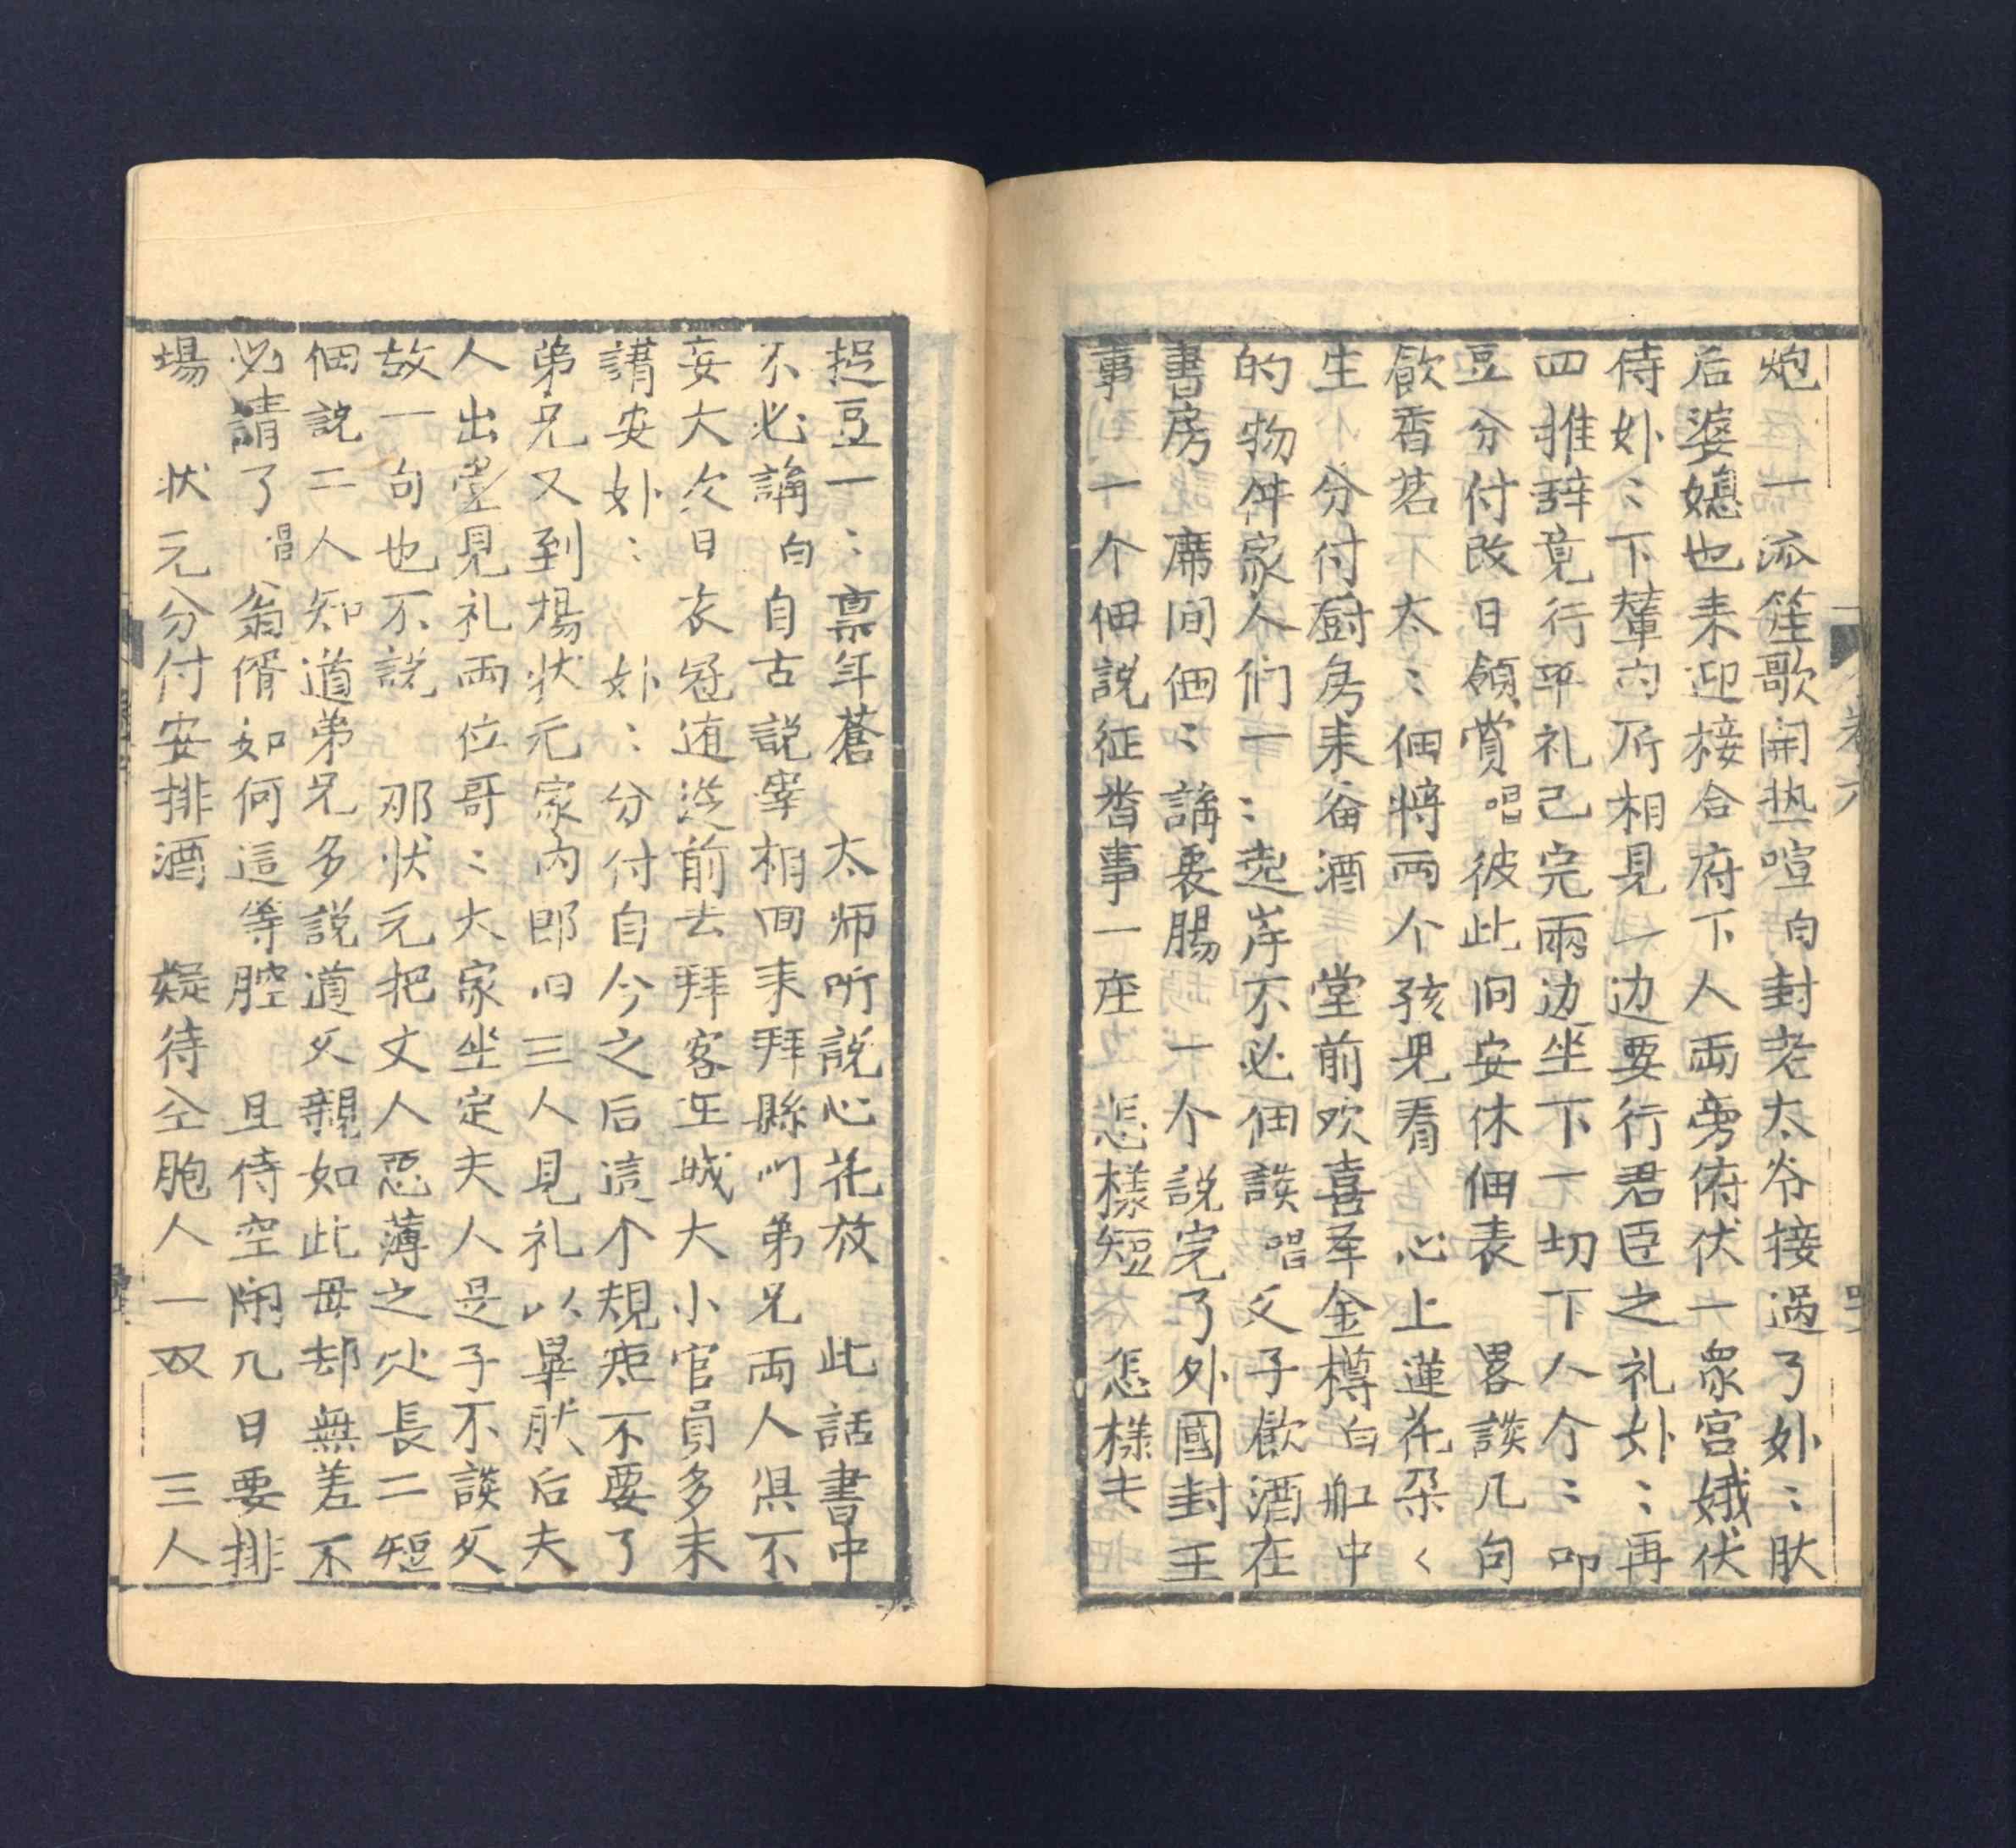 炮　一派笙歌闹热喧白封老太爷接過了妣〻肽
后婆媳也来迎接合府下人両旁俯伏一众宫娥伏
侍妣〻下輦内所相見一边要行君臣之礼妣〻再
四推辞竟行平礼已完兩边坐下一切下人个〻叩
豆分付改日領賞唱彼此问安休佃表　畧談几句
飲香茗　太〻佃將兩个孩児看　心上蓮花朶〻
生　分付厨房来备酒　堂前欢喜奉金樽白舡中
的物件家人们一〻起岸不必佃談唱父子飲酒在
書房　席间佃〻講衷腸　一个説完了外國封王
事　一个佃説征畨事一座　怎樣短　怎様夫
捉豆一〻禀年蒼　太师听説心花放　此話書中
不必講白自古説宰相回来拜縣门弟兄両人俱不
妄大次日衣冠迪送前去拜客正城大小官員多来
講安妣〻　妣〻分付自今之后這个規矩不要了
弟兄又到楊状元家内郎曰三人見礼以畢肰后夫
人出堂見礼両位哥〻大家坐定夫人是子不談父
故一句也不説　那状元把丈人恶薄之处長二短
佃説二人知道弟兄多説道父親如此毋却無差不
必請了唱　翁偦如何這等腔　且侍空闲几日要排
場　状元分付安排酒　疑待仝胞人一双　三人
卷六